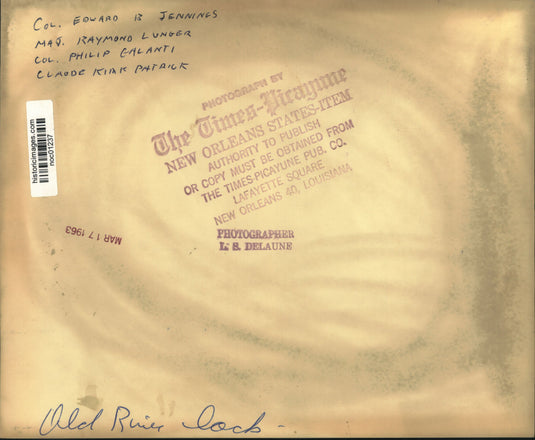 COL. EDWARD B JENNINGS
MAJ. RAYMOND LUNGER
COL. PHILIP GALANTI
CLAUDE KIRK PATRICK
historicimages.com
noc01237
PHOTOGRAPH BY
The Times-Picayune
NEW ORLEANS STATES-ITEM
AUTHORITY TO PUBLISH
OR COPY MUST BE OBTAINED FROM
THE TIMES-PICAYUNE PUB. CO.
LAFAYETTE SQUARE
NEW ORLEANS 40, LOUISIANA
PHOTOGRAPHER
L. S. DELAUNE
MAR 17 1963
Old River lock -